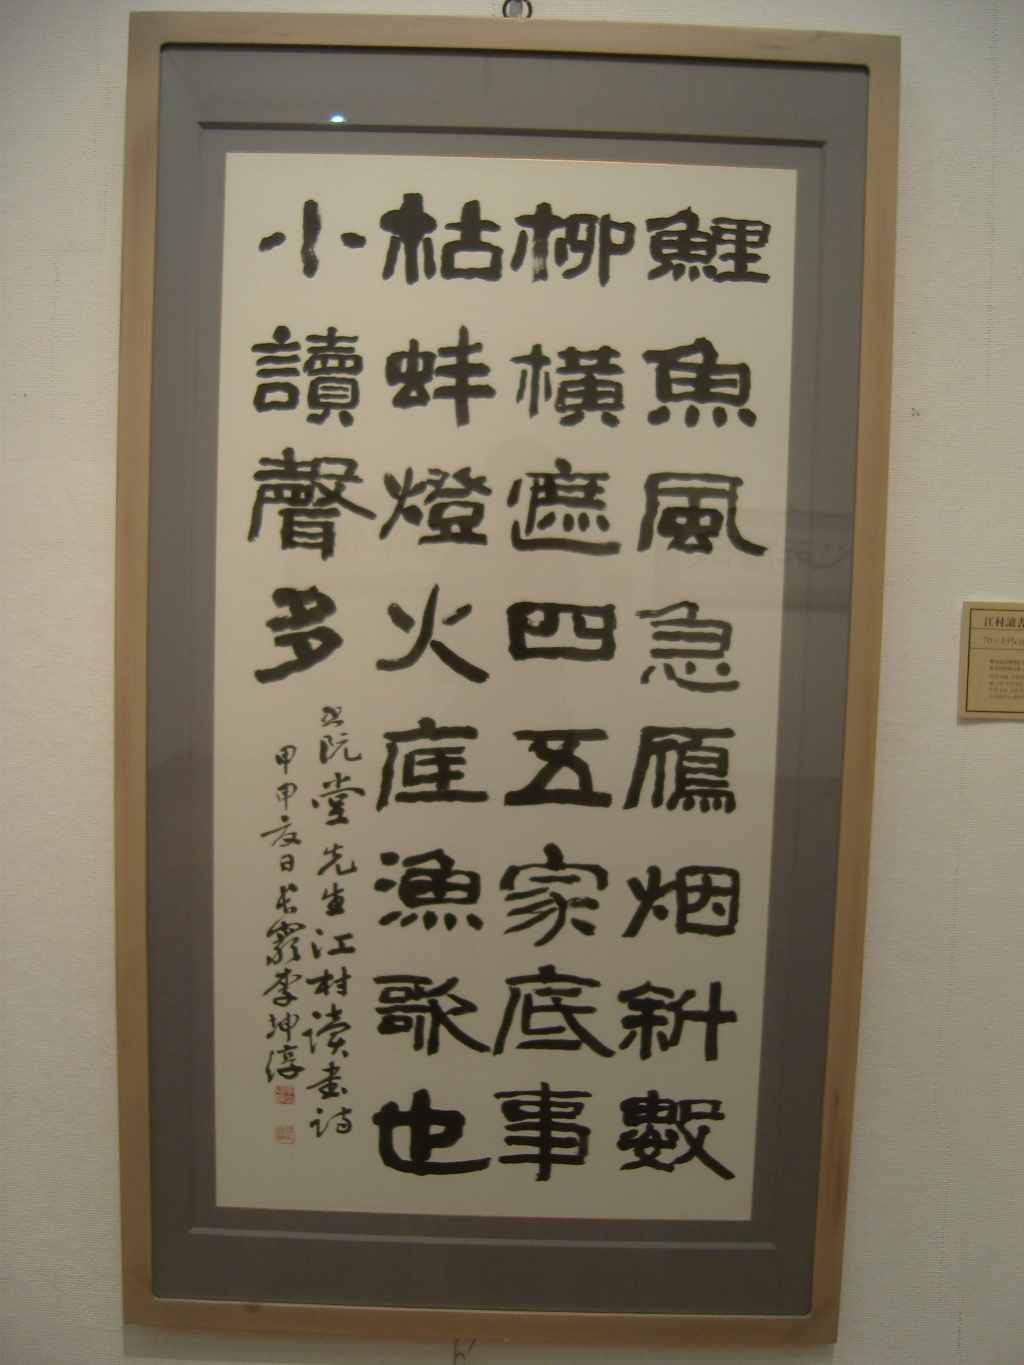 鯉魚風急鴈烟斜數
柳橫遮四五家底事
枯蚌燈火底漁歌也
小讀聲多
阮堂先生江村读书詩
甲申夏日 李坤淳
江村讀書
70×135cm